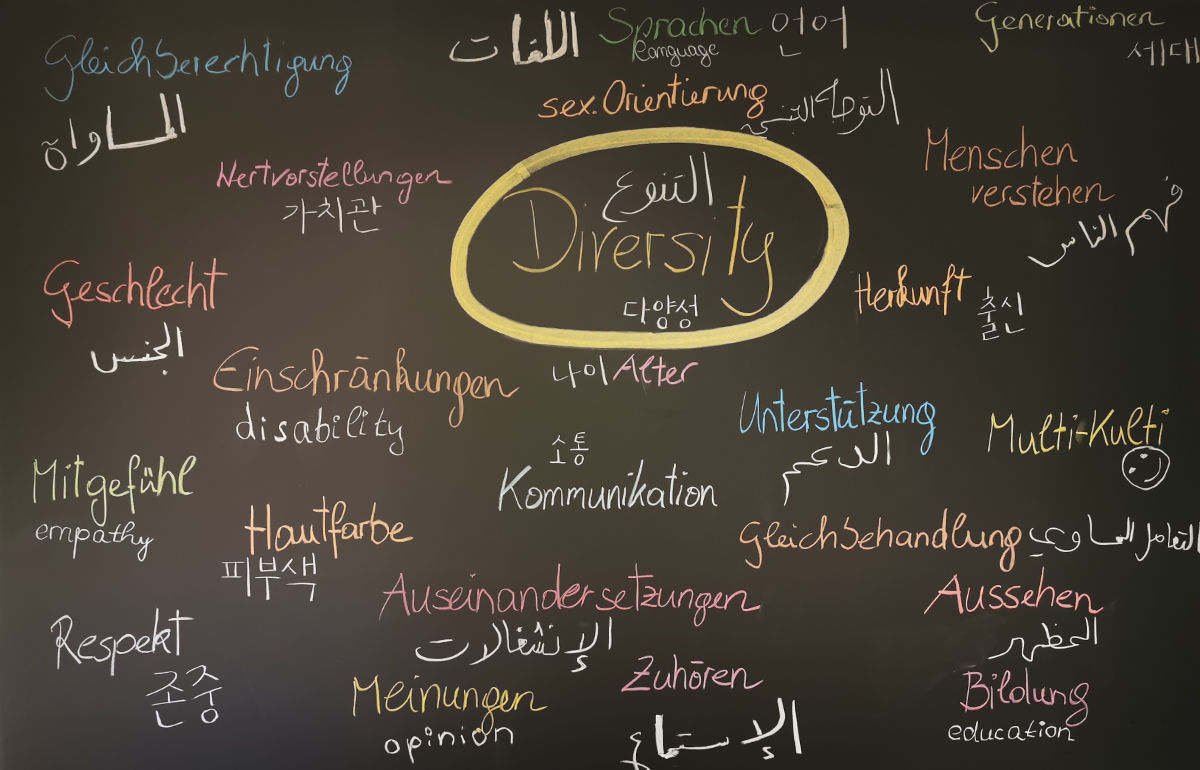 اللغات Sprachen 언어
language
Generationen
세대
Gleichberechtigung
المساواة
sex. Orientierung
التوجه الجنسي
Wertvorstellungen
가치관
التنوع
Diversity
다양성
Menschen
verstehen
فهم الناس
Geschlecht
الجنس
Herkunft 출신
Einschränkungen
disability
나이 Alter
Unterstützung
الدعم
Multi-Kulti
소통
Kommunikation
Mitgefühl
empathy
Hautfarbe
피부색
Gleichbehandlung التعامل المساوي
Auseinandersetzungen
الإنشغالات
Aussehen
المظهر
Respekt
존중
Meinungen
opinion
Zuhören
الإستماع
Bildung
education